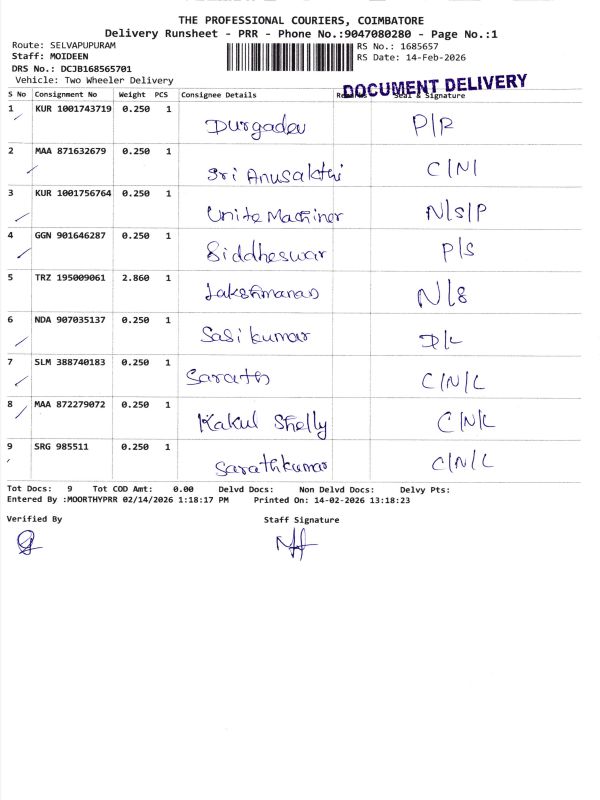 THE PROFESSIONAL COURIERS, COIMBATORE
Delivery Runsheet - PRR - Phone No.:9047080280 - Page No.:1
Route: SELVAPUPURAM RS No.: 1685657
Staff: MOIDEEN RS Date: 14-Feb-2026
DRS No.: DCJB168565701
Vehicle: Two Wheeler Delivery
DOCUMENT DELIVERY
S No Consignment No Weight PCS Consignee Details Seal & Signature
1 KUR 1001743719 0.250 1 Durgadev P/R
2 MAA 871632679 0.250 1 Sri Anusakthi C/N/
3 KUR 1001756764 0.250 1 Unite Machiner N/S/P
4 GGN 901646287 0.250 1 Siddheswar P/S
5 TRZ 195009061 2.860 1 Lakshmanan N/S
6 NDA 907035137 0.250 1 Sasikumar D/L
7 SLM 388740183 0.250 1 Sarath C/N/L
8 MAA 872279072 0.250 1 Kakul Shelly C/N/L
9 SRG 985511 0.250 1 Sarathkumar C/N/L
Tot Docs: 9 Tot COD Amt: 0.00 Delvd Docs: Non Delvd Docs: Delvy Pts:
Entered By :MOORTHYPRR 02/14/2026 1:18:17 PM Printed On: 14-02-2026 13:18:23
Verified By Staff Signature